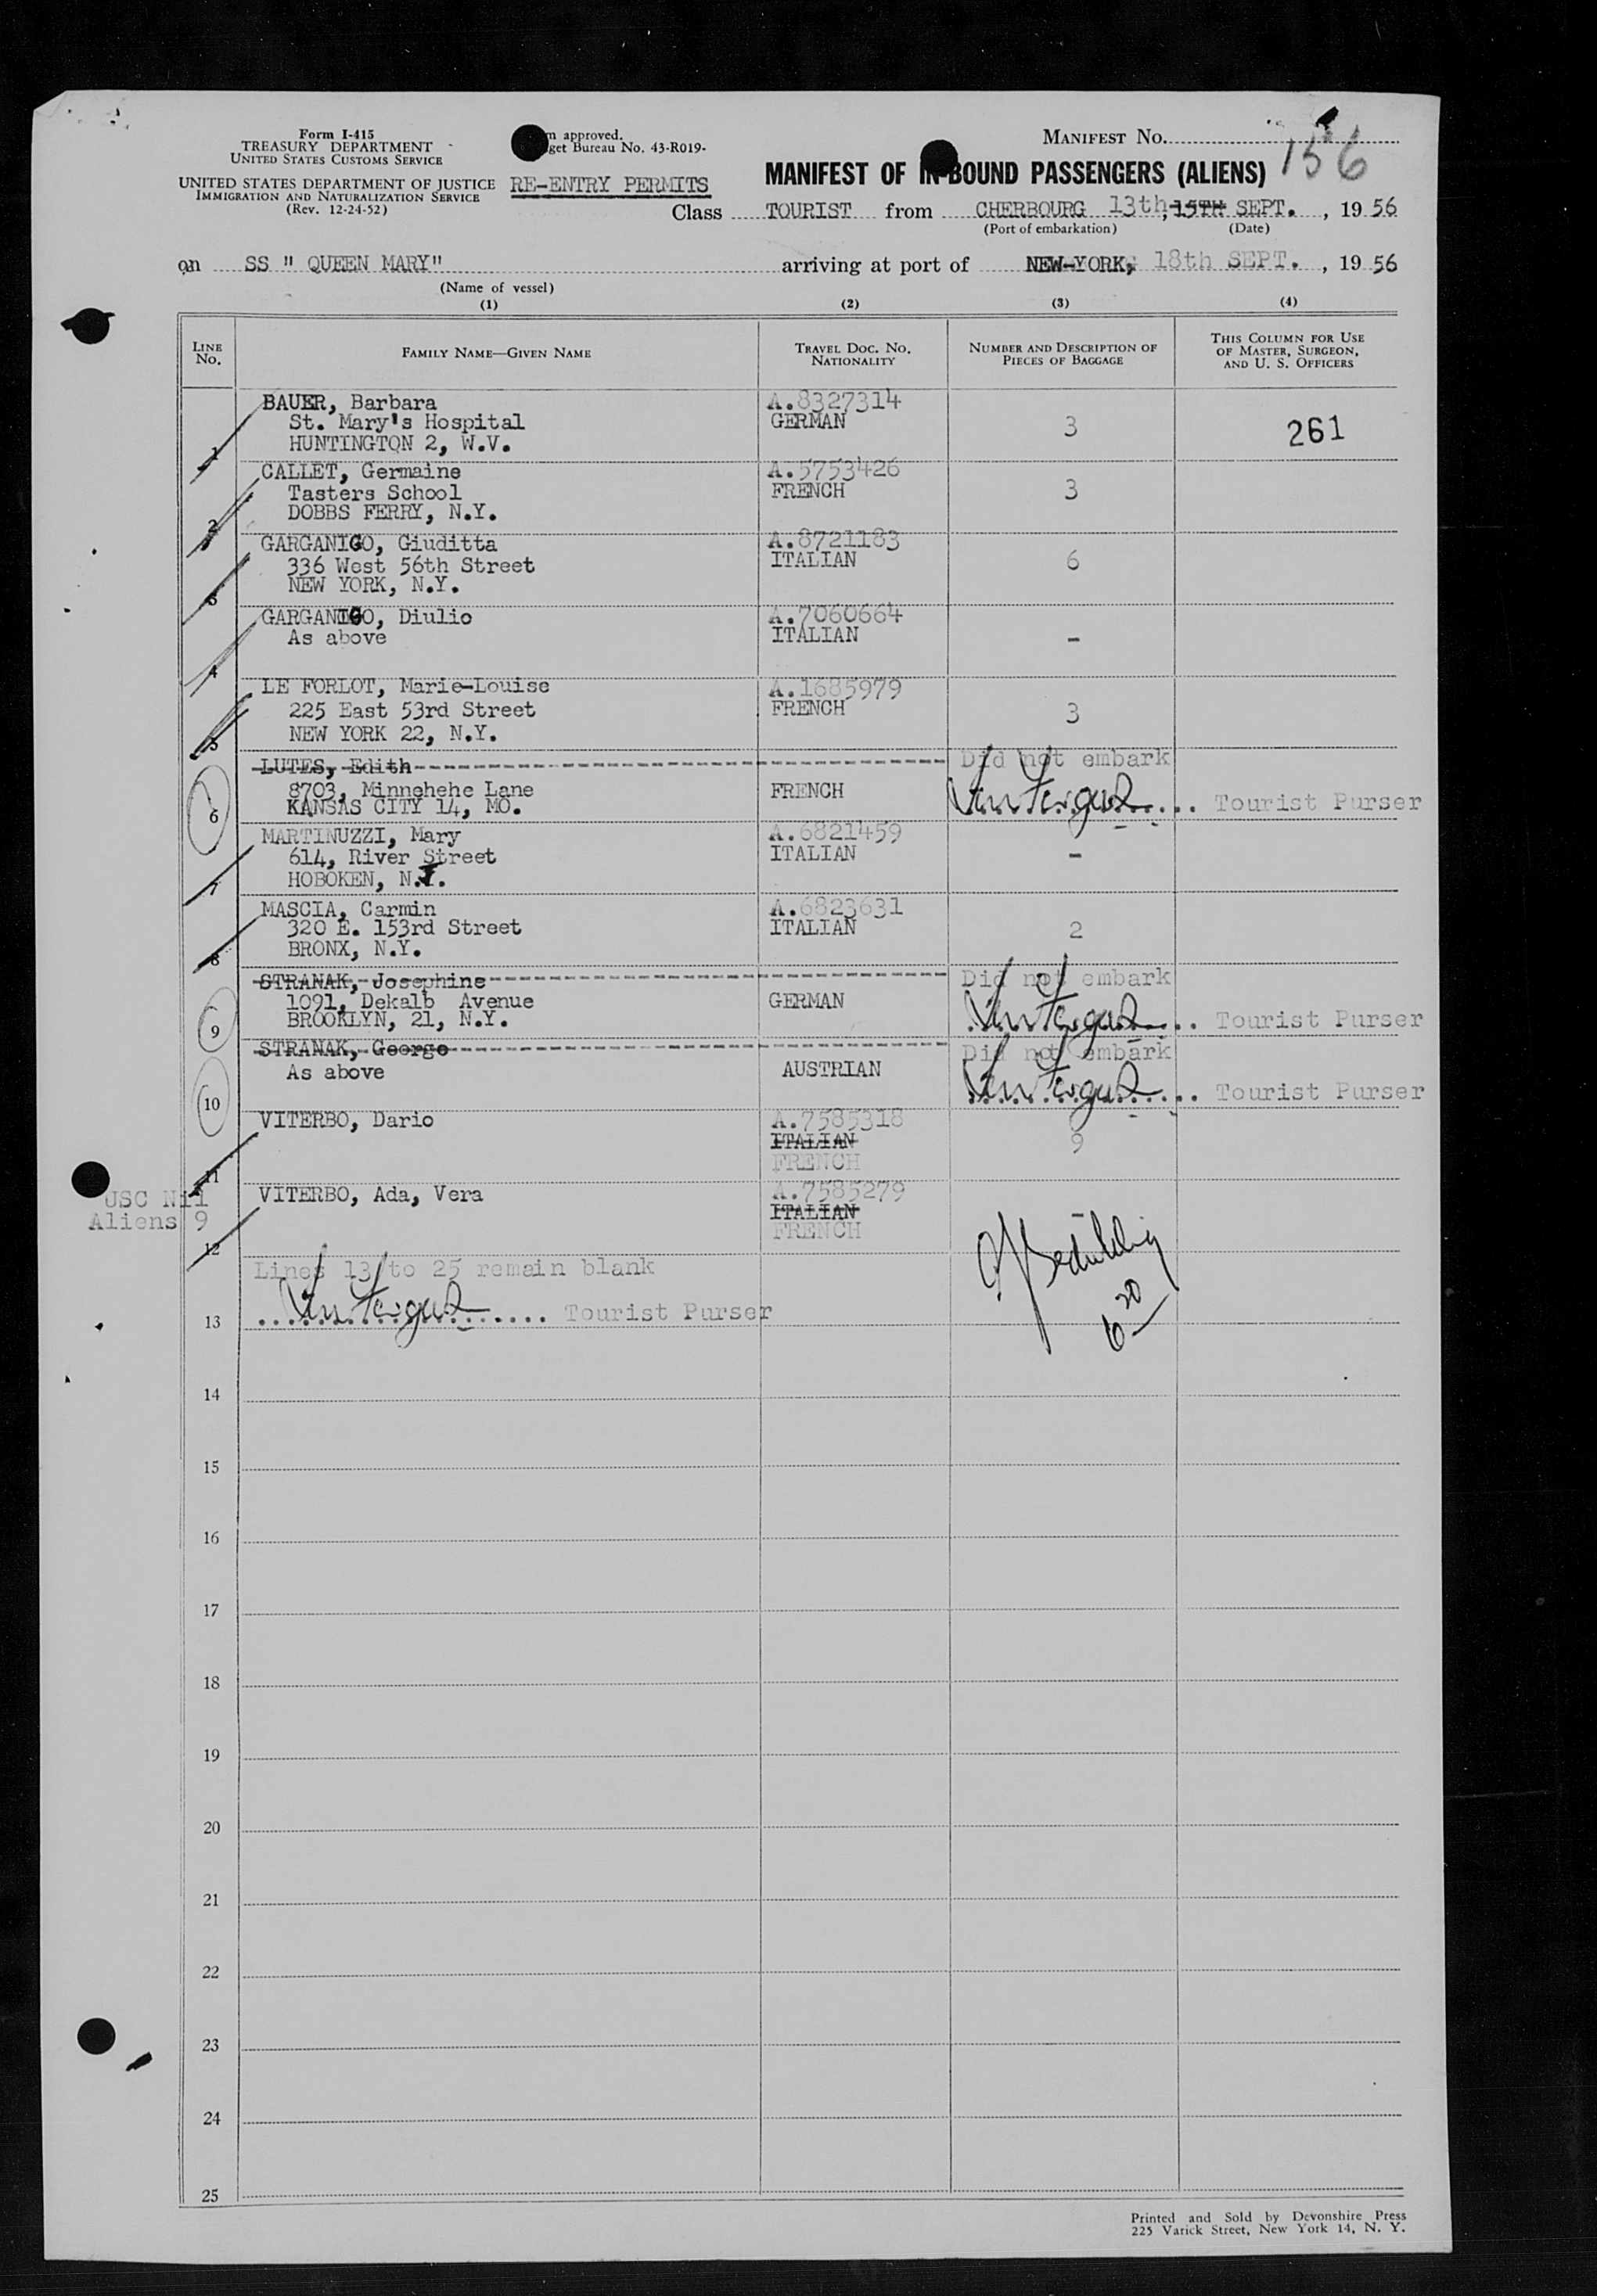 Form I-415
TREASURY DEPARTMENT
UNITED STATES CUSTOMS SERVICE
UNITED STATES DEPARTMENT OF JUSTICE
IMMIGRATION AND NATURALIZATION SERVICE
(Rev. 12-24-52)
m approved.
get Bureau No. 43-R019-
RE-ENTRY PERMITS
MANIFEST No. 156
MANIFEST OF INBOUND PASSENGERS (ALIENS)
Class TOURIST from CHERBOURG 13th, 15TH SEPT., 19 56
(Port of embarkation) (Date)
on SS " QUEEN MARY" arriving at port of NEW-YORK, 18th SEPT., 19 56
(Name of vessel)
(1) (2) (3) (4)
LINE No. FAMILY NAME—GIVEN NAME TRAVEL DOC. No. NATIONALITY NUMBER AND DESCRIPTION OF PIECES OF BAGGAGE THIS COLUMN FOR USE OF MASTER, SURGEON, AND U. S. OFFICERS
BAUER, Barbara A.8327314
St. Mary's Hospital GERMAN 3 261
1 HUNTINGTON 2, W.V.
CALLET, Germaine A.5753426
Tasters School FRENCH 3
2 DOBBS FERRY, N.Y.
GARGANIGO, Giuditta A.8721183
336 West 56th Street ITALIAN 6
3 NEW YORK, N.Y.
GARGANIGO, Diulio A.7060664
As above ITALIAN -
4
LE FORLOT, Marie-Louise A.1685979
225 East 53rd Street FRENCH 3
5 NEW YORK 22, N.Y.
LUTES, Edith Did not embark
8703, Minnehehe Lane FRENCH
6 KANSAS CITY 14, MO. Tourist Purser
MARTINUZZI, Mary A.6821459
614, River Street ITALIAN -
7 HOBOKEN, N.J.
MASCIA, Carmin A.6823631
320 E. 153rd Street ITALIAN 2
8 BRONX, N.Y.
STRANAK, Josephine Did not embark
1091, Dekalb Avenue GERMAN
9 BROOKLYN, 21, N.Y. Tourist Purser
STRANAK, George Did not embark
As above AUSTRIAN
10 Tourist Purser
VITERBO, Dario A.7585318
ITALIAN 9
FRENCH
11
USC Nil
Aliens 9
VITERBO, Ada, Vera A.7585279
ITALIAN -
FRENCH
12
Lines 13 to 25 remain blank
13 Tourist Purser
14
15
16
17
18
19
20
21
22
23
24
25
Printed and Sold by Devonshire Press
225 Varick Street, New York 14, N. Y.